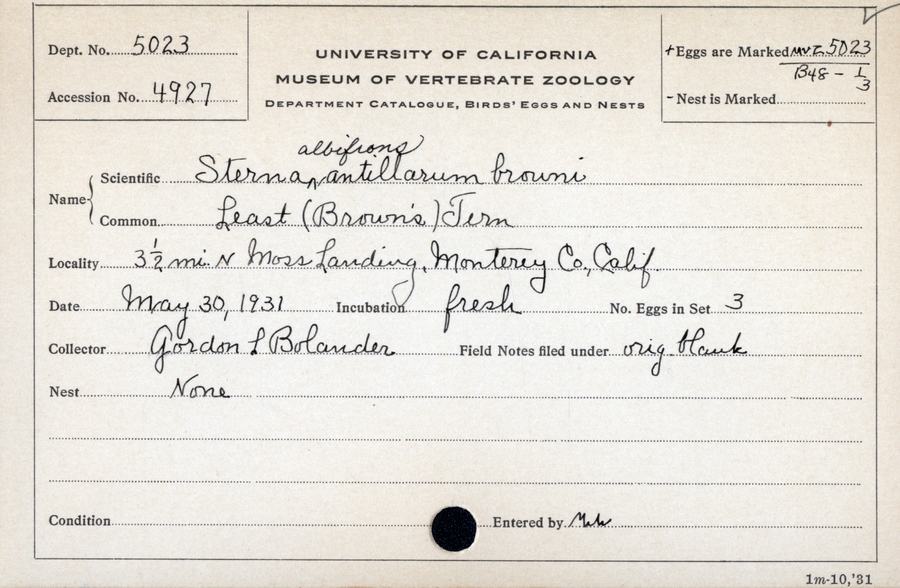 Dept. No. 5023
Accession No. 4927
UNIVERSITY OF CALIFORNIA
MUSEUM OF VERTEBRATE ZOOLOGY
DEPARTMENT CATALOGUE, BIRDS' EGGS AND NESTS
+ Eggs are Marked MVZ 5023
B48 - 1/3
- Nest is Marked
albifrons
Name Scientific Sterna ^ antillarum browni
Common Least (Brown's) Tern
Locality 3½ mi. N Moss Landing, Monterey Co., Calif.
Date May 30, 1931 Incubation fresh No. Eggs in Set 3
Collector Gordon L Bolander Field Notes filed under orig. blank
Nest None
Condition Entered by
1m-10,'31